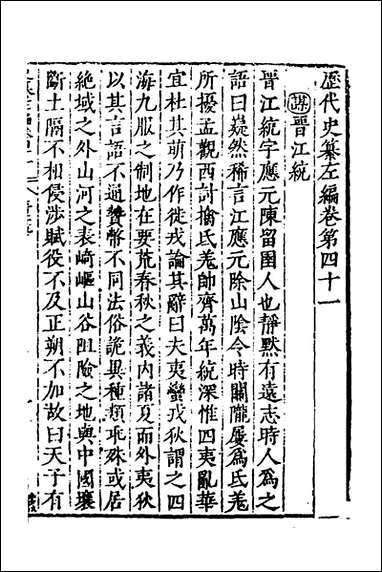 歷代史纂左編卷第四十一
謀 晉江統
晉江統字應元陳留圉人也靜默有遠志時人爲之
語曰嶷然稀言江應元除山陰令時關隴屢爲氐羗
所擾孟觀西討擒氐羗帥齊萬年統深惟四夷亂華
宜杜其萌乃作徙戎論其辭曰夫夷蠻戎狄謂之四
海九服之制地在要荒春秋之義内諸夏而外夷狄
以其言語不通贄幣不同法俗詭異種類乖殊或居
絶域之外山河之表崎嶇山谷阻險之地與中國壤
斷土隔不相侵涉賦役不及正朔不加故曰天子有